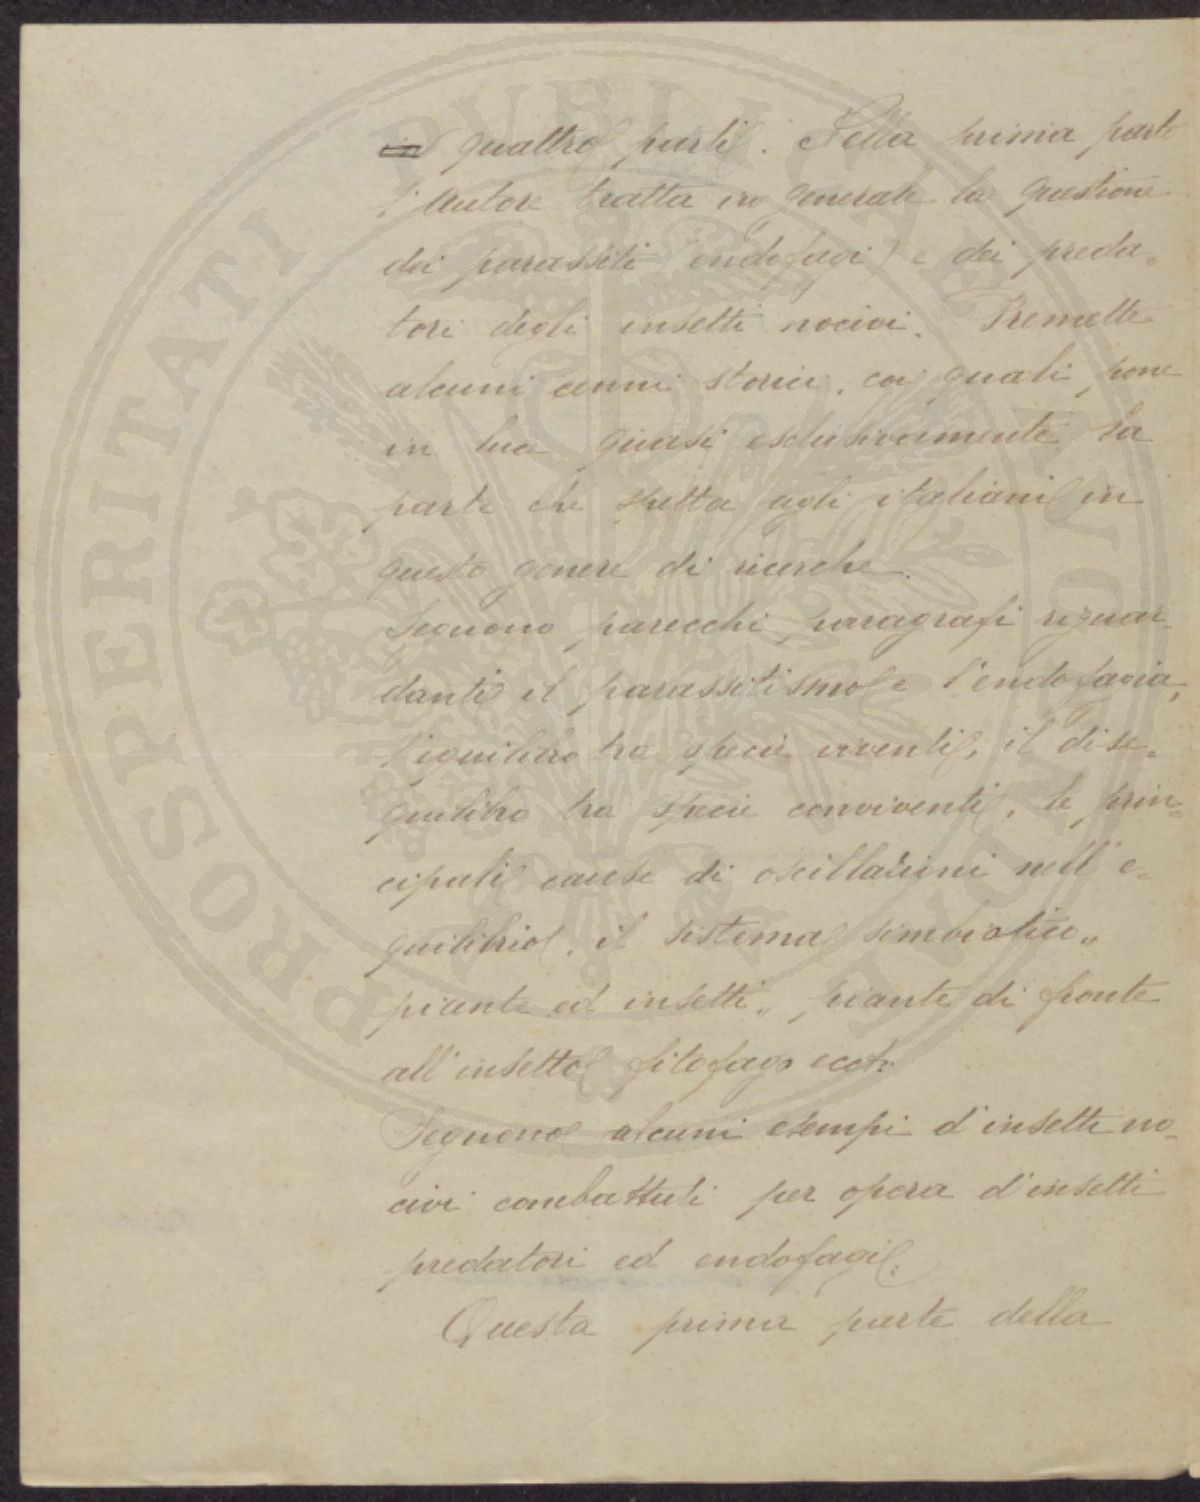 in quattro parti. Nella prima parte
l'autore tratta in generale la questione
dei parassiti (endofagi) e dei preda=
tori degli insetti nocivi. Premette
alcuni cenni storici, coi quali pone
in luce quasi esclusivamente la
parte che spetta agli italiani in
questo genere di ricerche.
Seguono parecchi paragrafi riguar=
danti il parassitismo e l'endofagia,
l'equilibro tra specie viventi, il dise=
quilibro tra specie conviventi, le prin=
cipali cause di oscillazioni nell'e=
quilibrio, il sistema simbiotico „
piante ed insetti „ piante di fronte
all'insetto fitofago ecct.
Seguono alcuni esempi d'insetti no=
civi combattuti per opera d'insetti
predatori ed endofagi.
Questa prima parte della
PROSPERITATI PVBLICAE AVGENDAE